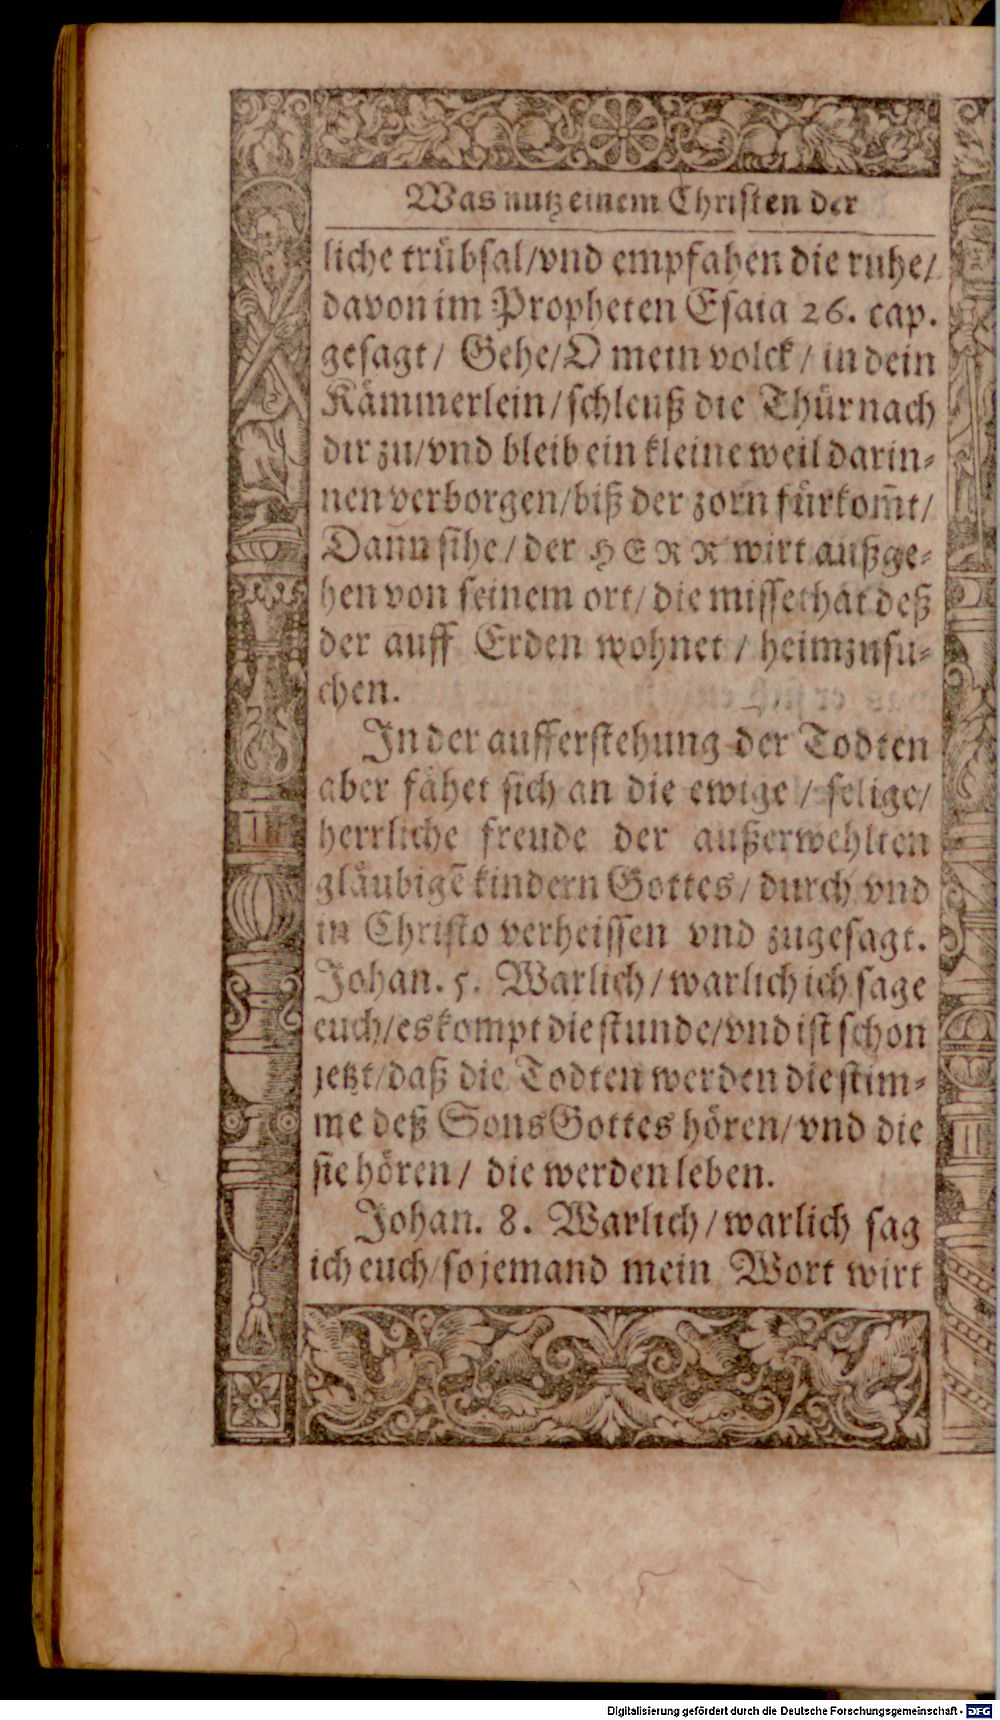 Was nutz einem Christen der
liche trübsal/vnd empfahen die ruhe/
davon im Propheten Esaia 26. cap.
gesagt/ Gehe/O mein volck/ in dein
Kämmerlein/schleuß die Thür nach
dir zu/vnd bleib ein kleine weil darin-
nen verborgen/biß der zorn fürkom̃t/
Dann sihe/ der HERR wirt außge-
hen von seinem ort/ die missethat deß
der auff Erden wohnet/ heimzusu-
chen.
In der aufferstehung der Todten
aber fähet sich an die ewige/ selige/
herrliche freude der außerwehlten
gläubigẽ kindern Gottes/ durch vnd
in Christo verheissen vnd zugesagt.
Johan. 5. Warlich/warlich ich sage
euch/es kompt die stunde/vnd ist schon
jetzt/daß die Todten werden die stim-
me deß Sons Gottes hören/vnd die
sie hören/ die werden leben.
Johan. 8. Warlich/warlich sag
ich euch/so jemand mein Wort wirt
Digitalisierung gefördert durch die Deutsche Forschungsgemeinschaft - DFG